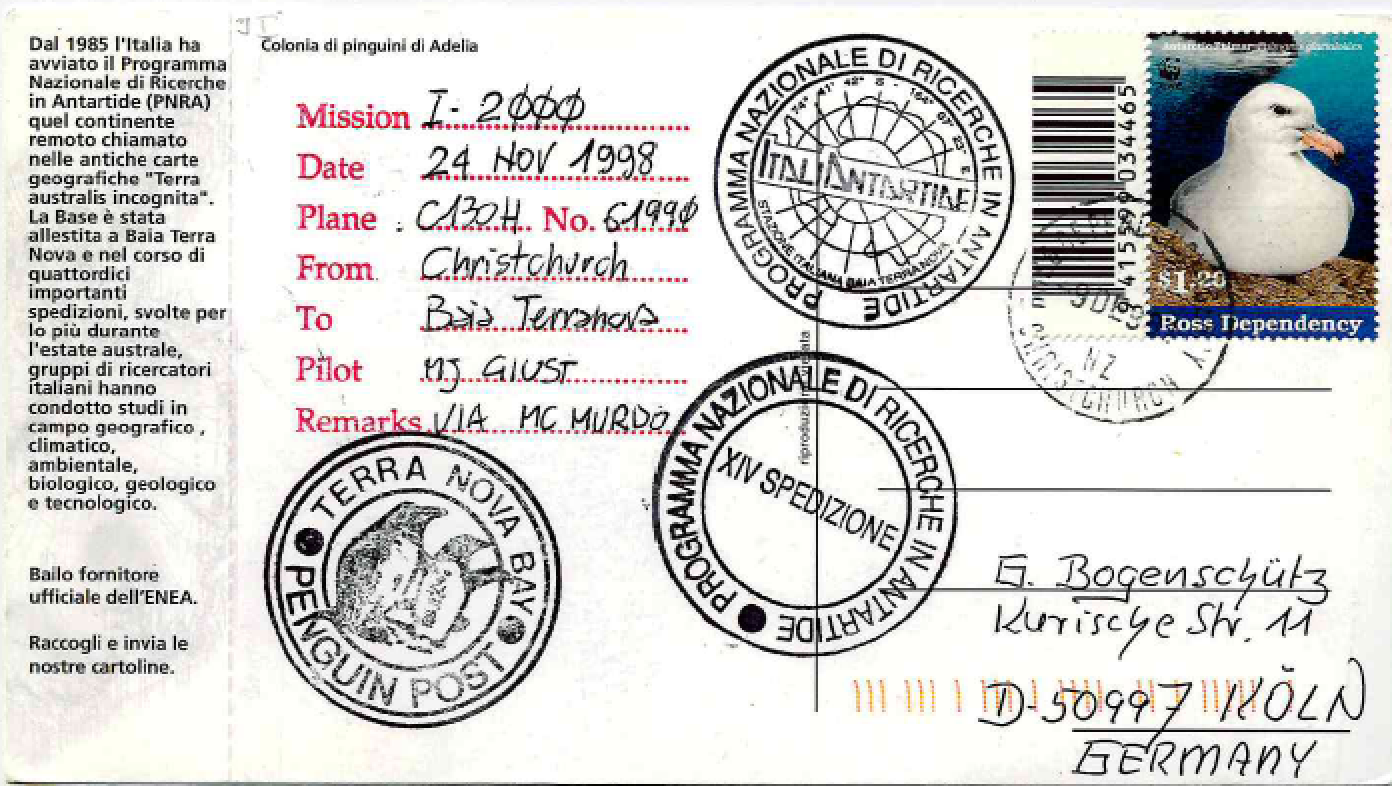 Dal 1985 l'Italia ha
avviato il Programma
Nazionale di Ricerche
in Antartide (PNRA)
quel continente
remoto chiamato
nelle antiche carte
geografiche "Terra
australis incognita".
La Base è stata
allestita a Baia Terra
Nova e nel corso di
quattordici
importanti
spedizioni, svolte per
lo più durante
l'estate australe,
gruppi di ricercatori
italiani hanno
condotto studi in
campo geografico ,
climatico,
ambientale,
biologico, geologico
e tecnologico.
Bailo fornitore
ufficiale dell'ENEA.
Raccogli e invia le
nostre cartoline.
Colonia di pinguini di Adelia
Mission I-2000
Date 24 NOV 1998
Plane : C130H No. 61990
From Christchurch
To Baia Terranova
Pilot MJ GIUST
Remarks VIA MC MURDO
PROGRAMMA NAZIONALE DI RICERCHE IN ANTARTIDE
ITALIANTARTIDE
STAZIONE ITALIANA BAIA TERRA NOVA
PROGRAMMA NAZIONALE DI RICERCHE IN ANTARTIDE
XIV SPEDIZIONE
TERRA NOVA BAY
PENGUIN POST
riproduzione
9 415599 034465
Antarctic Fulmar
WWF
$1.20
Ross Dependency
NZ
CHRISTCHURCH
G. Bogenschütz
Kurische Str. 11
D-50997 KÖLN
GERMANY